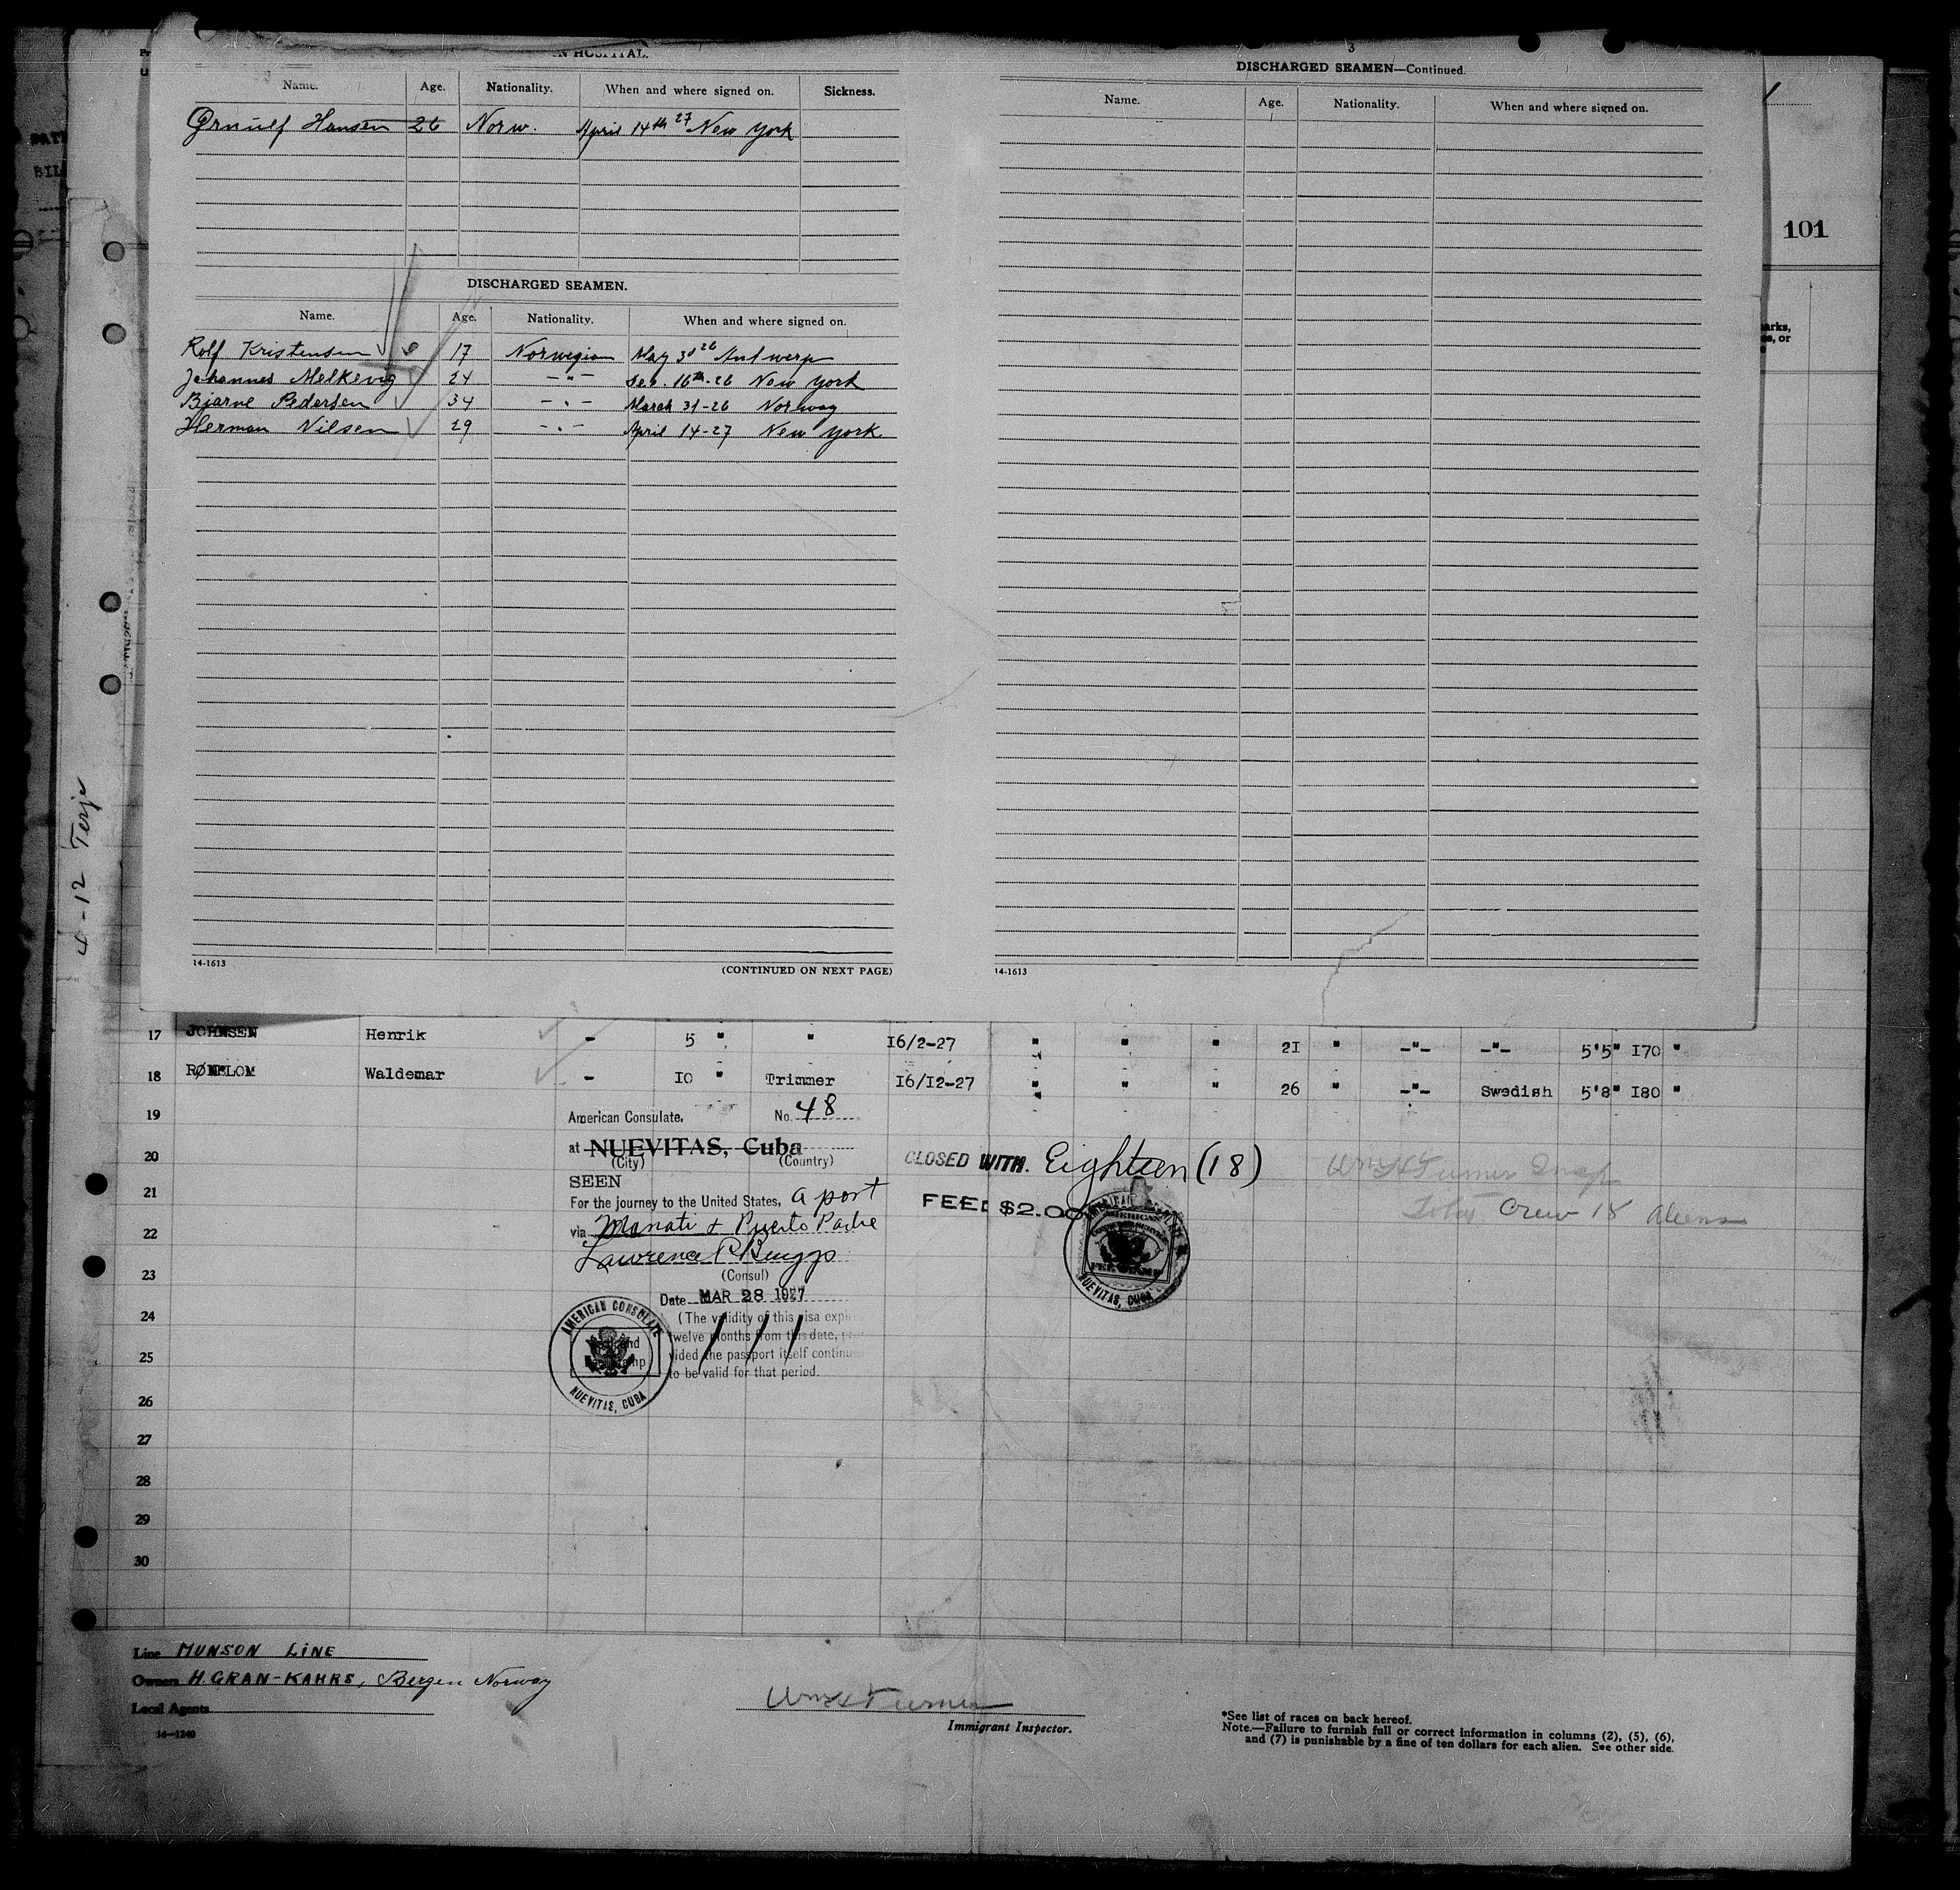 N HOSPITAL.
Name. Age. Nationality. When and where signed on. Sickness.
Ornulf Hansen 26 Norw. April 14th 27 New York
DISCHARGED SEAMEN.
Name. Age. Nationality. When and where signed on.
Rolf Kristensen 17 Norwegian May 3d 26 Antwerp
Johannes Melkevig 24 -"- Sep. 16th-26 New York
Bjarne Pedersen 34 -"- March 31-26 Norway
Herman Nilsen 29 -"- April 14-27 New York
14-1613 (CONTINUED ON NEXT PAGE)
3
DISCHARGED SEAMEN—Continued.
Name. Age. Nationality. When and where signed on.
14-1613
101
arks,
es, or
PATE
BIL
4-12 Terje
17 JOHNSEN Henrik - 5 " " I6/2-27 " " " 2I " -"- -"- 5'5" I70 "
18 Waldemar - IO " Trimmer I6/I2-27 " " " 26 " -"- Swedish 5'8" I80 "
19
20
21
22
23
24
25
26
27
28
29
30
American Consulate. No. 48
at NUEVITAS, Cuba
(City) (Country)
SEEN
For the journey to the United States, a port
via Manati & Puerto Padre
Lawrence P. Briggs
(Consul)
Date MAR 28 1927
(The validity of this visa expir
twelve months from this date, pro
vided the passport itself continue
to be valid for that period.
AMERICAN CONSULATE
NUEVITAS, CUBA
CLOSED WITH. Eighteen (18)
FEE: $2.00
AMERICAN
FEE STAMP
NUEVITAS, CUBA
Wm H Turner Insp
Total Crew 18 aliens
Line MUNSON LINE
Owners H. GRAN-KAHRS, Bergen Norway
Local Agents
14-1240
Wm H Turner
Immigrant Inspector.
*See list of races on back hereof.
Note.—Failure to furnish full or correct information in columns (2), (5), (6),
and (7) is punishable by a fine of ten dollars for each alien. See other side.